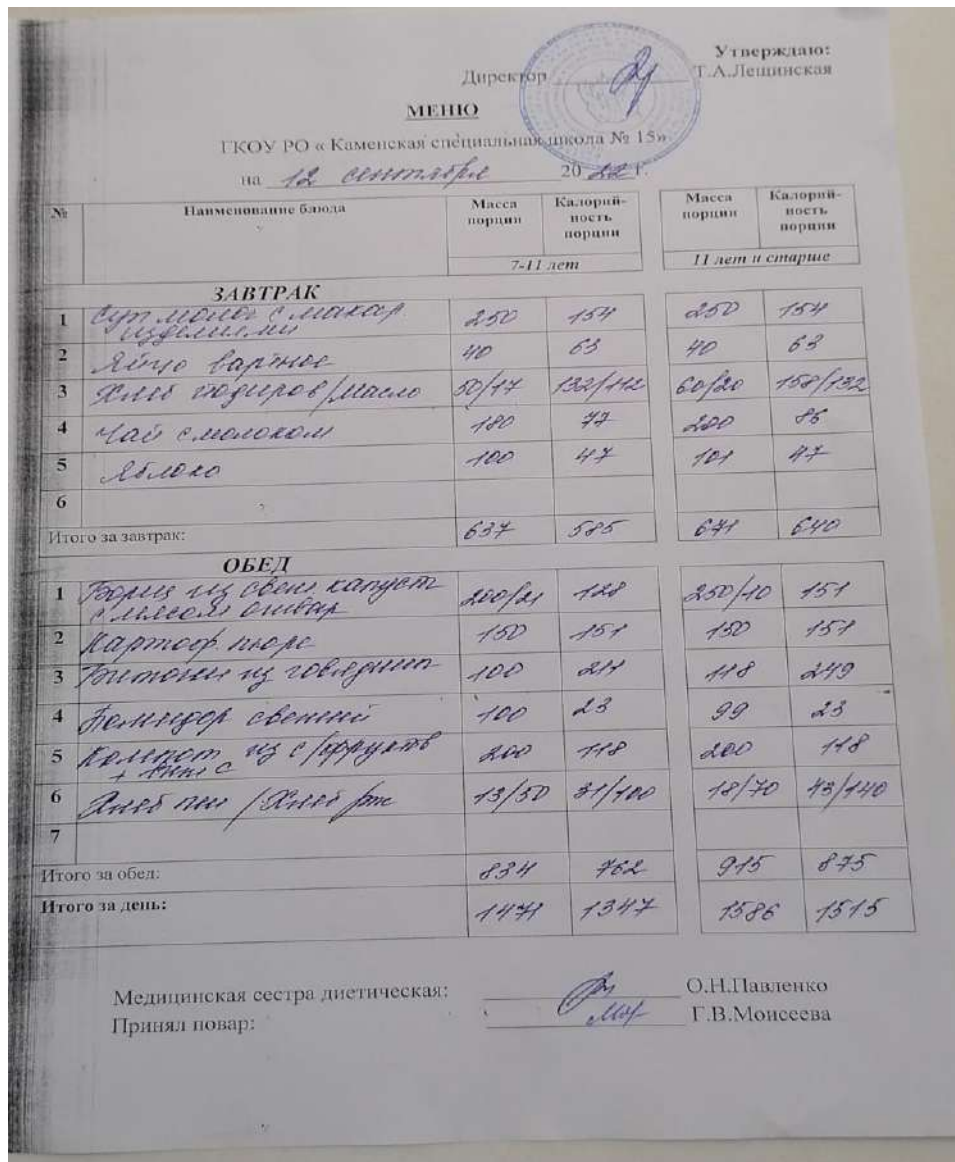 Утверждаю:
Директор Т.А.Лещинская
МЕНЮ
ГКОУ РО « Каменская специальная школа № 15»
на 12 сентября 2022 г.
№ Наименование блюда Масса порции Калорий-ность порции Масса порции Калорий-ность порции
7-11 лет 11 лет и старше
ЗАВТРАК
1 Суп молоч с макар изделиями 250 154 250 154
2 Яйцо вареное 40 63 40 63
3 Хлеб йодиров/масло 50/17 132/112 60/20 158/132
4 Чай с молоком 180 77 200 86
5 Яблоко 100 47 101 47
6
Итого за завтрак: 637 585 671 640
ОБЕД
1 Борщ из свеж капусты с мясом отвар 200/21 128 250/10 151
2 Картоф пюре 150 151 150 151
3 Биточки из говядины 100 211 118 249
4 Помидор свежий 100 23 99 23
5 Компот из с/фруктв + вит С 200 118 200 118
6 Хлеб пш / Хлеб рж 13/50 31/100 18/70 43/140
7
Итого за обед: 834 762 915 875
Итого за день: 1471 1347 1586 1515
Медицинская сестра диетическая: О.Н.Павленко
Принял повар: Г.В.Моисеева